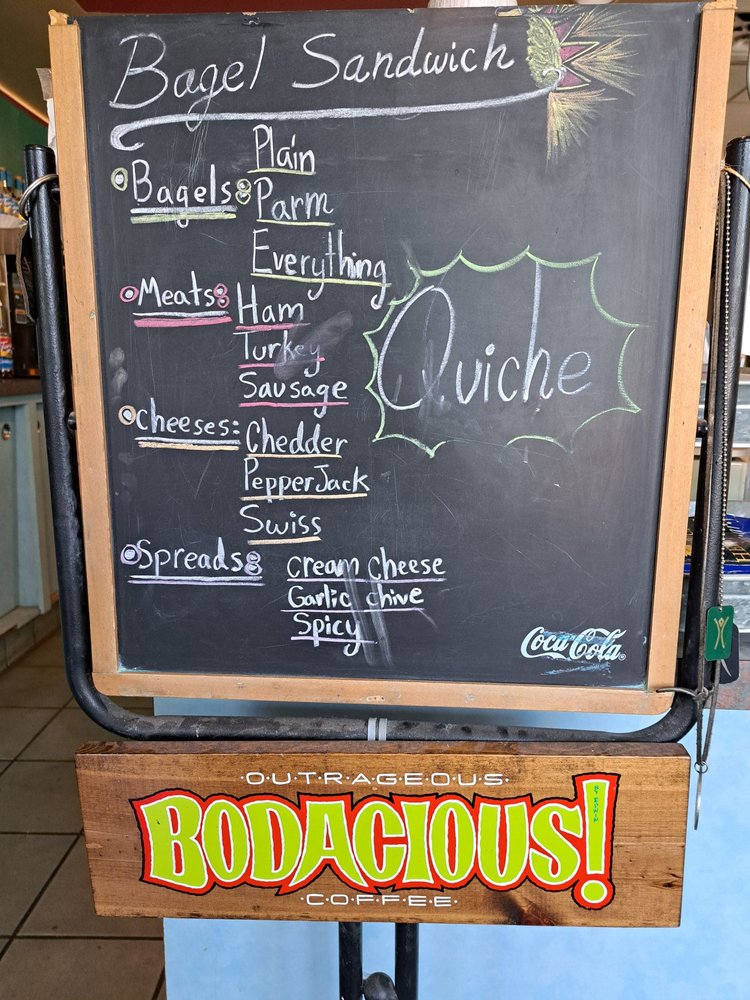 Bagel Sandwich
Bagels: Plain
Parm
Everything
Meats: Ham
Turkey
Sausage
Quiche
cheeses: Chedder
Pepper Jack
Swiss
Spreads: cream cheese
Garlic chive
Spicy
Coca-Cola®
O·U·T·R·A·G·E·O·U·S
BODACIOUS!
BY EDWIN
C·O·F·F·E·E